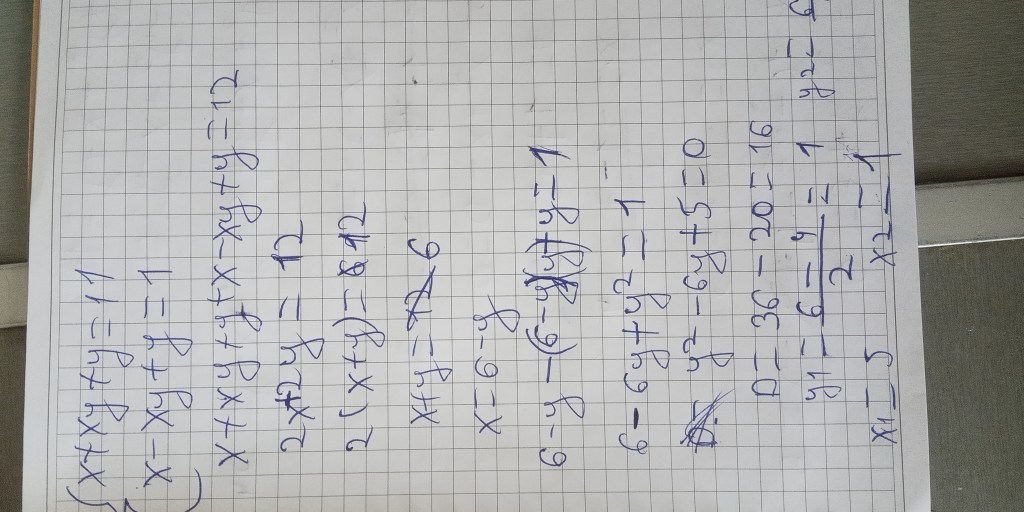 x+xy+y=11
x-xy+y=1
x+xy+y+x-xy+y=12
2x+2y=12
2(x+y)=12
x+y=6
x=6-y
6-y-(6-y)y+y=1
6-6y+y²=1
y²-6y+5=0
D=36-20=16
y1=6-4/2=1 y2=6
x1=5 x2=1